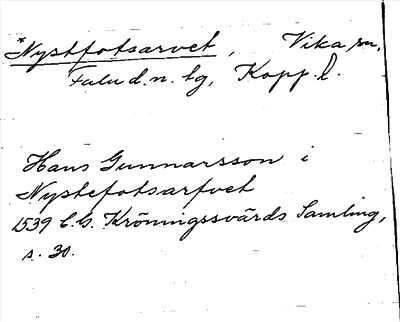 *Nystfotsarvet, Vika sn,
Falu d.n. lg, Kopp. l.
Hans Gunnarsson i
Nystefotsarfvet
1539 C.G. Kröningssvärds Samling,
s. 30.